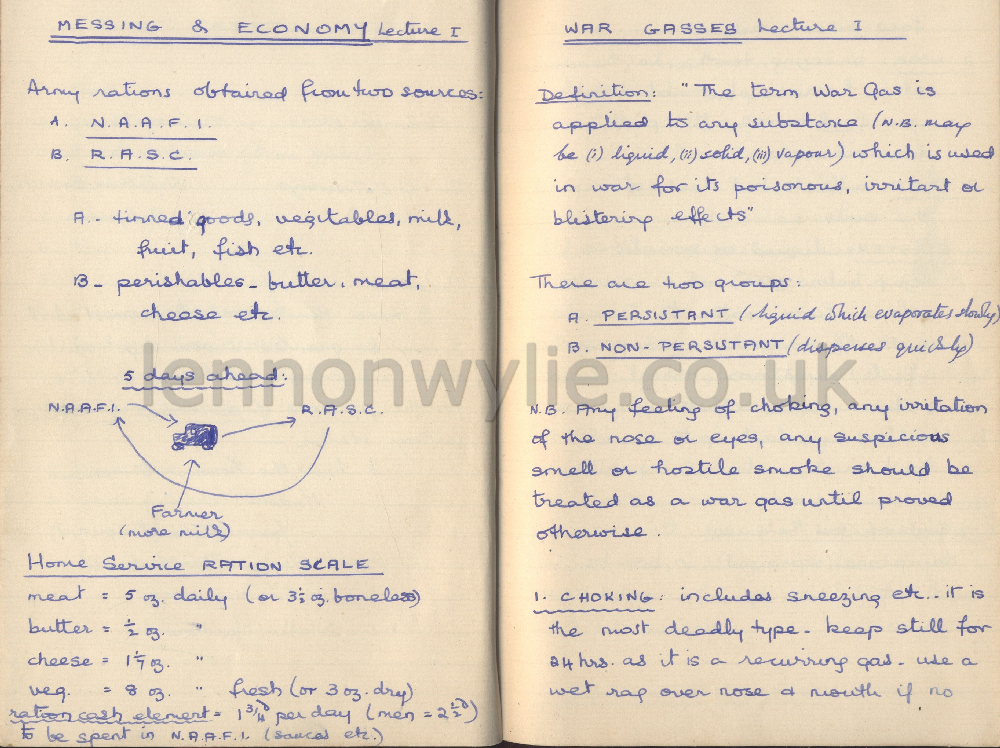 MESSING & ECONOMY Lecture I
Army rations obtained from two sources:
A. N.A.A.F.I.
B. R.A.S.C.
A. - tinned goods, vegetables, milk,
fruit, fish etc.
B - perishables - butter, meat,
cheese etc.
5 days ahead:
N.A.A.F.I. R.A.S.C.
Farmer
(more milk)
Home Service RATION SCALE
meat = 5 oz. daily (or 3½ oz. boneless)
butter = ½ oz. "
cheese = 1 1/7 oz. "
veg. = 8 oz. " fresh (or 3 oz. dry)
ration cash element = 1 3/4d per day (men = 2½d)
to be spent in N.A.A.F.I. (sauces etc.)
WAR GASSES Lecture I
Definition: "The term War Gas is
applied to any substance (N.B. may
be (i) liquid, (ii) solid, (iii) vapour) which is used
in war for its poisonous, irritant or
blistering effects"
There are two groups:
A. PERSISTANT (liquid which evaporates slowly)
B. NON-PERSISTANT (disperses quickly)
N.B. Any feeling of choking, any irritation
of the nose or eyes, any suspicious
smell or hostile smoke should be
treated as a war gas until proved
otherwise.
1. CHOKING: includes sneezing etc.. it is
the most deadly type - keep still for
24 hrs. as it is a recurring gas - use a
wet rag over nose & mouth if no
lennonwylie.co.uk